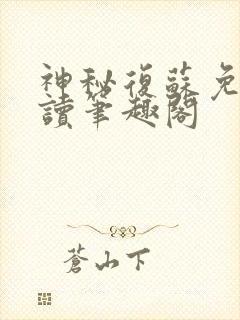 神秘復蘇免
讀筆趣閣
蒼山下